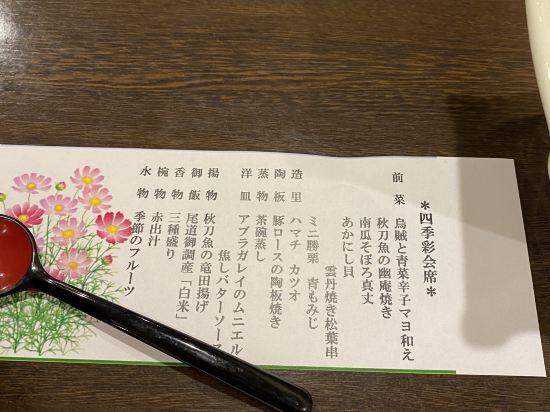 *四季彩会席*
前菜 烏賊と青菜辛子マヨ和え
秋刀魚の幽庵焼き
南瓜そぼろ真丈
あかにし貝
雲丹焼き松葉串
ミニ勝栗 青もみじ
造里 ハマチ カツオ
陶板 豚ロースの陶板焼き
蒸物 茶碗蒸し
洋皿 アブラガレイのムニエル
焦しバターソース
揚物 秋刀魚の竜田揚げ
御飯 尾道御調産「白米」
香物 三種盛り
椀物 赤出汁
水物 季節のフルーツ